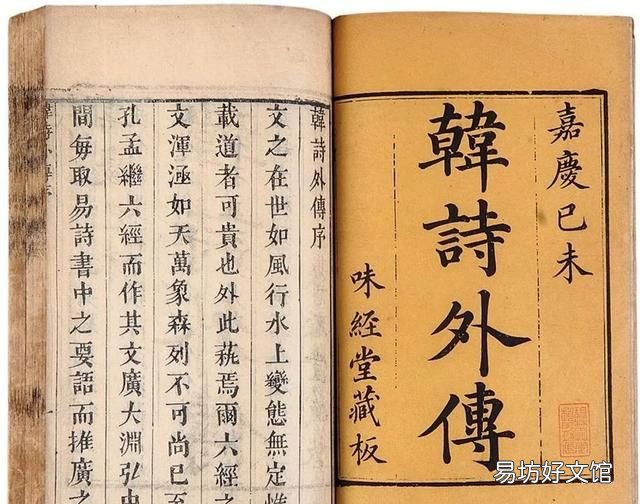 嘉慶己未
韓詩外傳
味經堂藏板
韓詩外傳序
文之在世如風行水上變態無定惟
載道者可貴也外此蓺焉爾六經之
文渾涵如天萬象森列不可尚已至
孔孟繼六經而作其文廣大淵弘中
間每取易詩書中之要語而推廣之
易坊好文馆